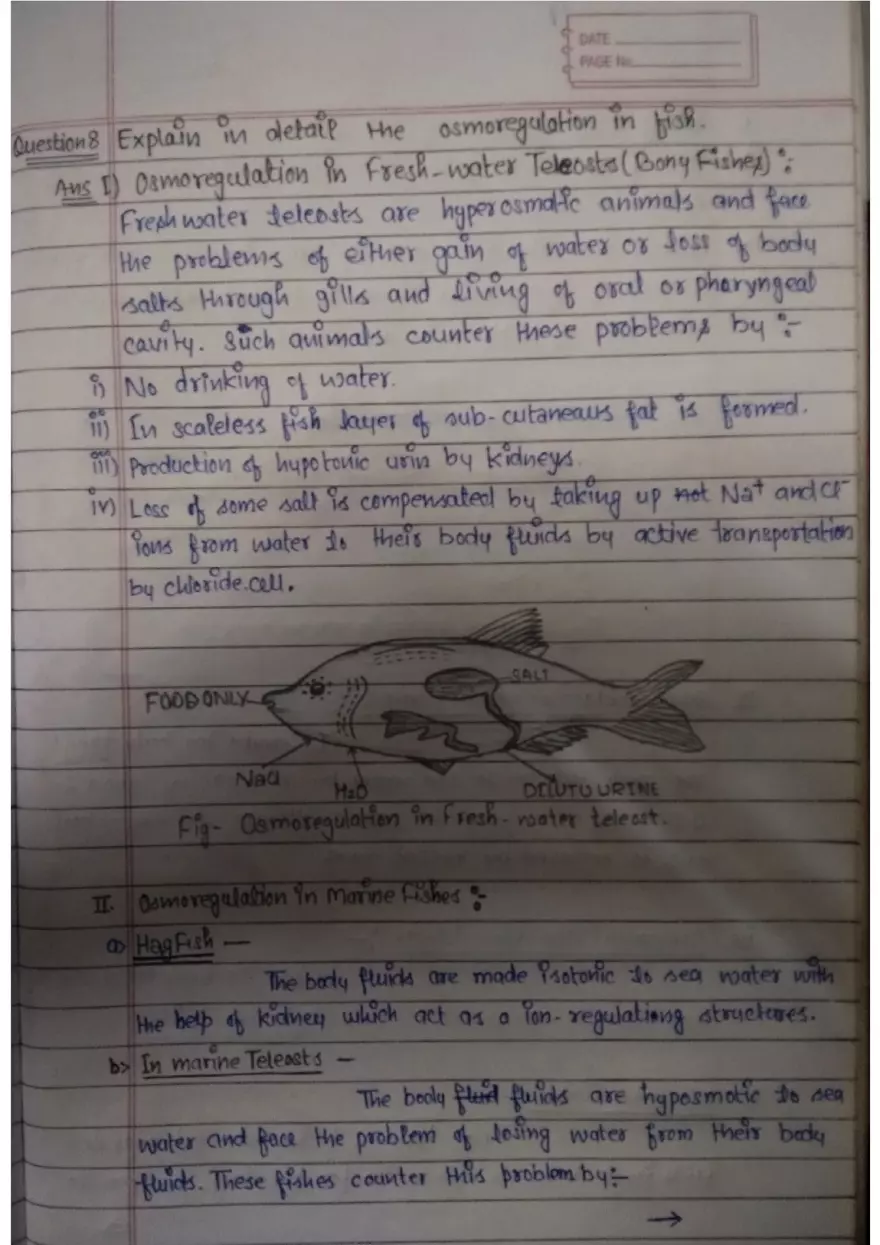 DATE
PAGE No.
Question 8 Explain in detail the osmoregulation in fish.
Ans I) Osmoregulation in Fresh-water Teleosts (Bony Fishes) :-
Fresh water teleosts are hyperosmotic animals and face
the problems of either gain of water or loss of body
salts through gills and living of oral or pharyngeal
cavity. Such animals counter these problems by :-
i) No drinking of water.
ii) In scaleless fish layer of sub-cutaneaus fat is formed.
iii) Production of hypotonic urin by kidneys.
iv) Loss of some salt is compensated by taking up not Na+ and Cl-
ions from water to their body fluids by active transportation
by chloride.cell.
SALT
FOOD ONLY
NaCl
H2O
DILUTU URINE
Fig- Osmoregulation in Fresh-water teleost.
II. Osmoregulation in Marine Fishes :-
a) HagFish —
The body fluids are made isotonic to sea water with
the help of kidney which act as a ion-regulationg structures.
b) In marine Teleosts —
The body fluid fluids are hyposmotic to sea
water and face the problem of losing water from their body
fluids. These fishes counter this problem by:-
→